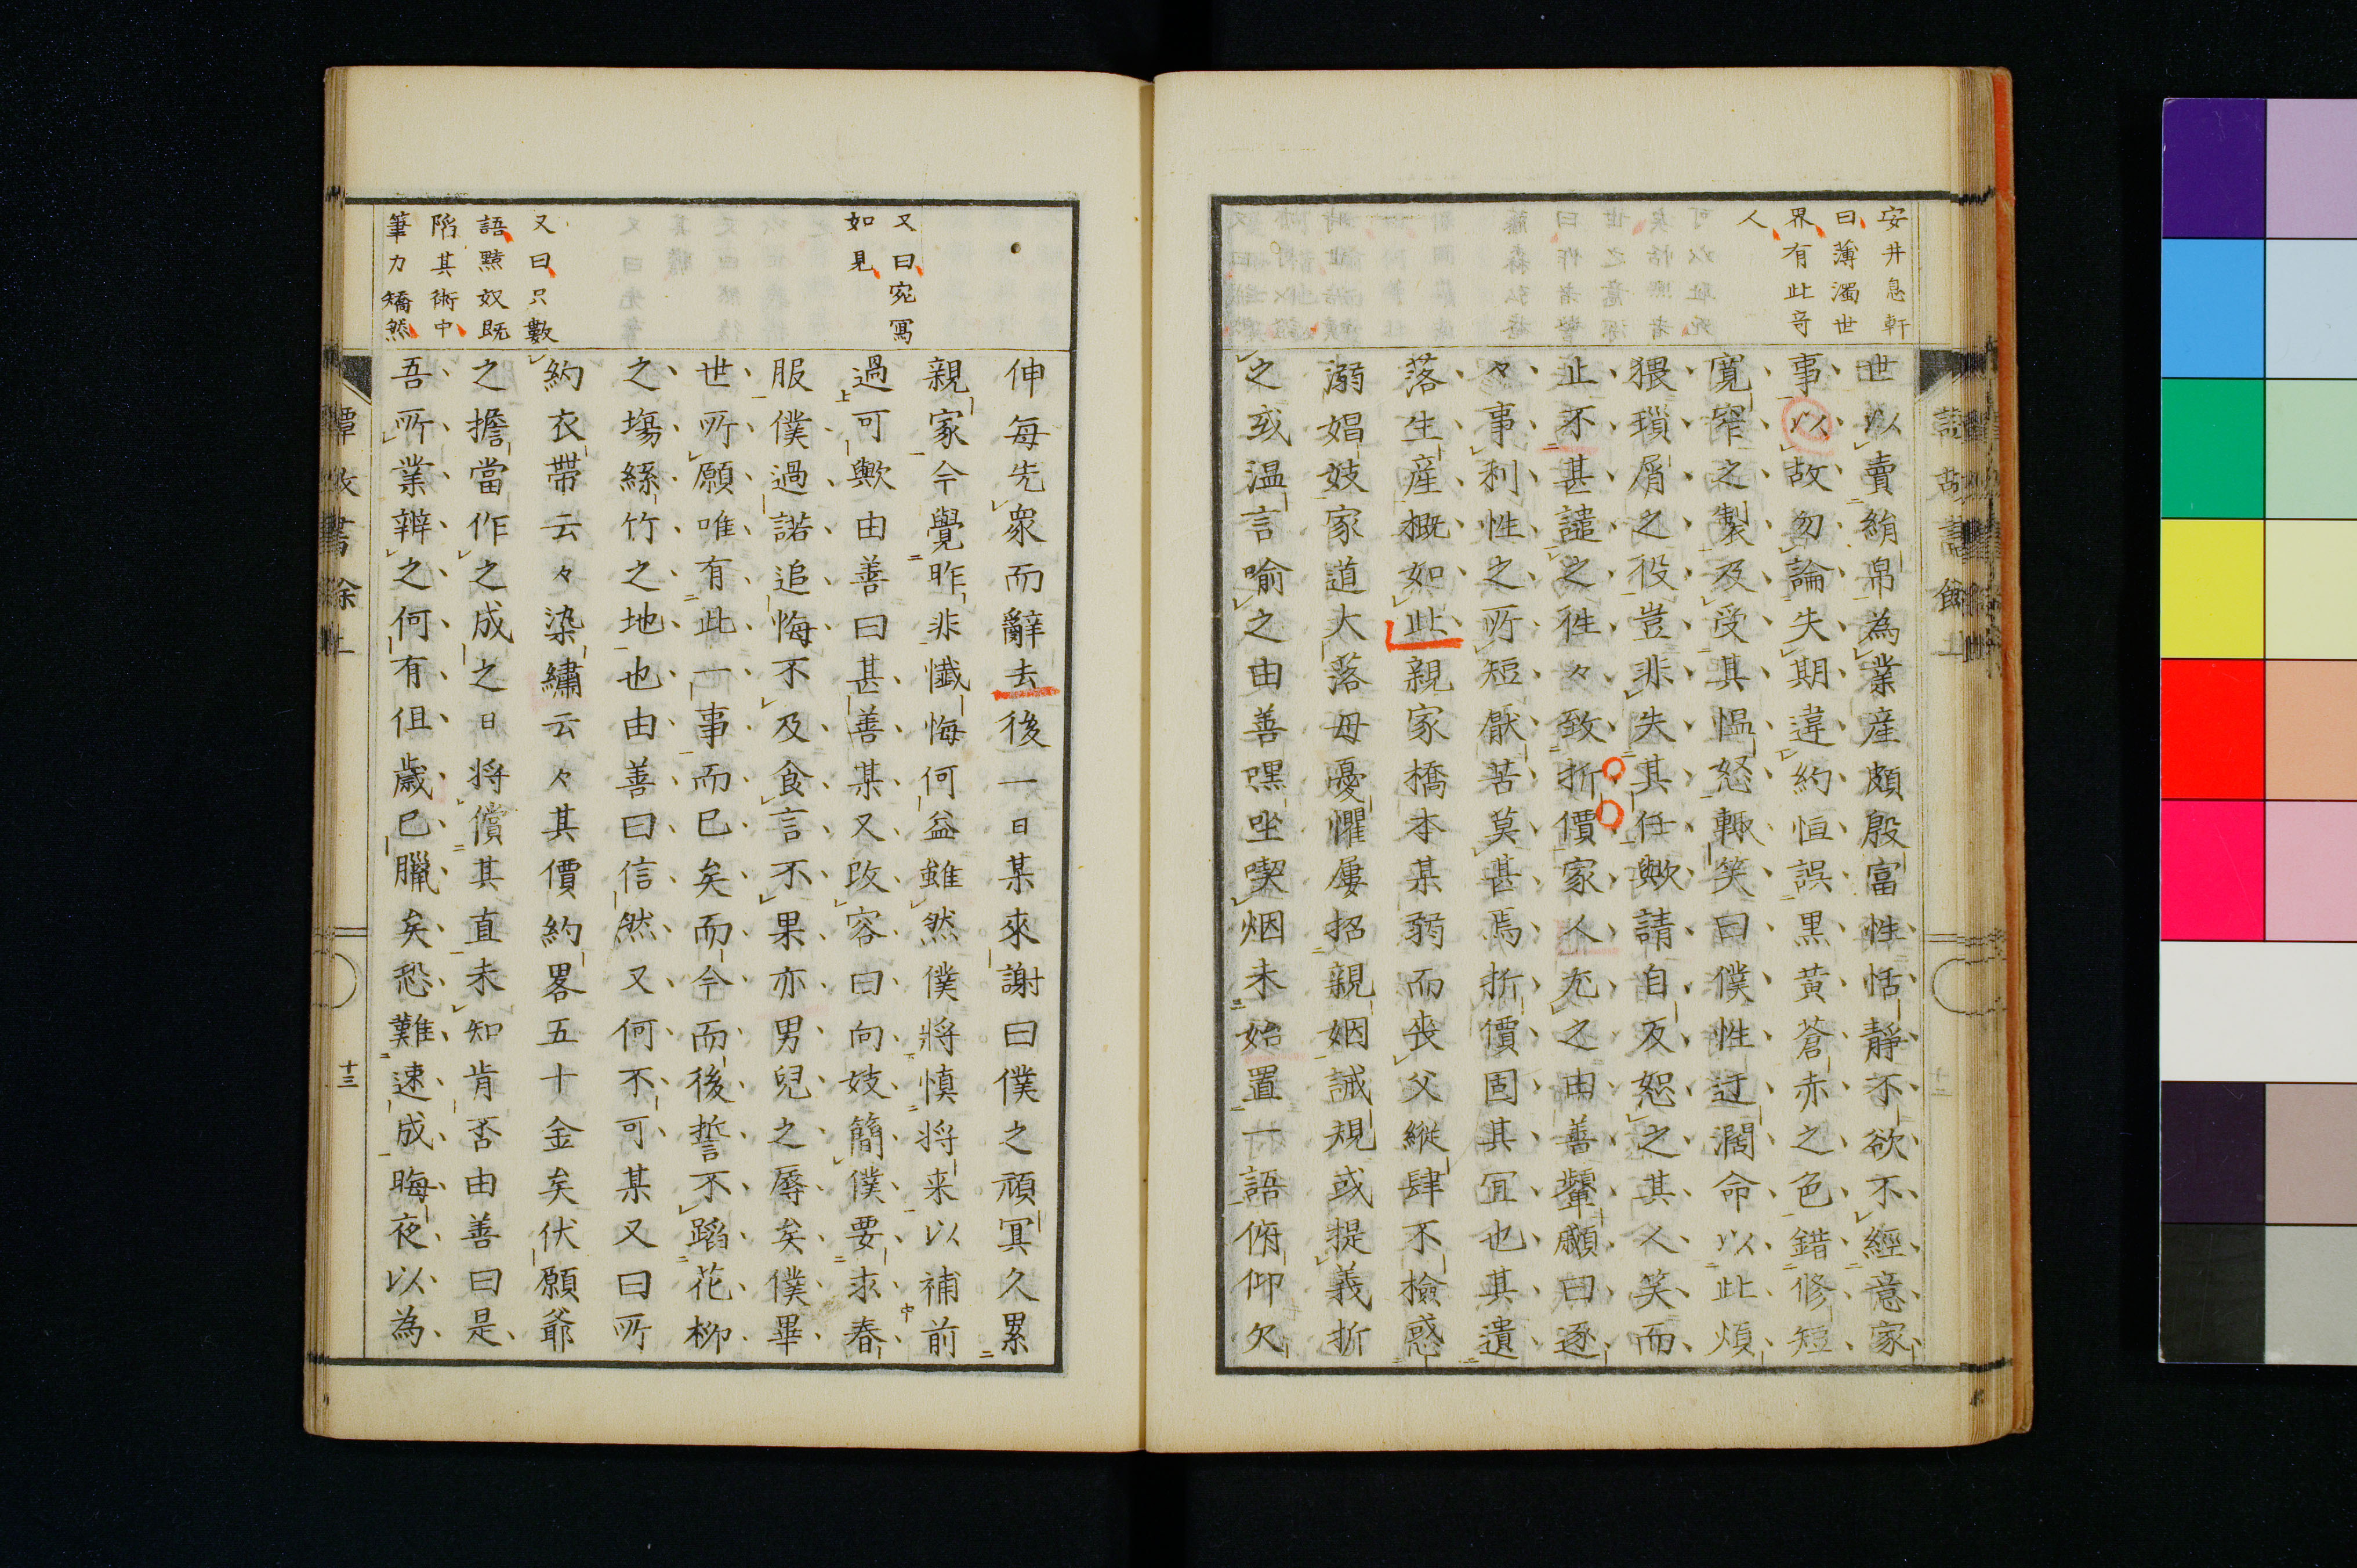 安井息軒
曰薄濁世
界有此奇
人
世以賣絹帛為業產頗殷富性恬靜不欲不經意家
事以故勿論失期違約恒誤黒黃蒼赤之色錯修短
寬窄之製及受其慍怒輙笑曰僕性迂濶命以此煩
猥瑣屑之役豈非失其任歟請自反恕之其人笑而
止不甚譴之徃々致折價家人尤之由善顰顣曰逐
々事利性之所短厭苦莫甚焉折價固其冝也其遺
落生産概如此親家橋本某弱而丧父縱肆不檢惑
溺娼妓家道大落母憂懼屢招親姻誡規或提義折
之或温言喻之由善嘿坐喫烟未始置一語俯仰欠
又曰宛冩
如見
又曰只數
語黠奴既
䧟其術中
筆力矯然
伸每先衆而辭去後一日某來謝曰僕之頑冥久累
親家今覺昨非懺悔何益雖然僕將慎将来以補前
過可歟由善曰甚善某又改容曰向妓簡僕要求春
服僕過諾追悔不及食言不果亦男兒之辱矣僕畢
世所願唯有此一事而已矣而今而後誓不蹈花柳
之塲絲竹之地也由善曰信然又何不可某又曰所
約衣帶云々染繡云々其價約畧五十金矣伏願爺
之擔當作之成之日将償其直未知肯否由善曰是
吾所業辦之何有伹歲已臘矣恐難速成晦夜以為
十三